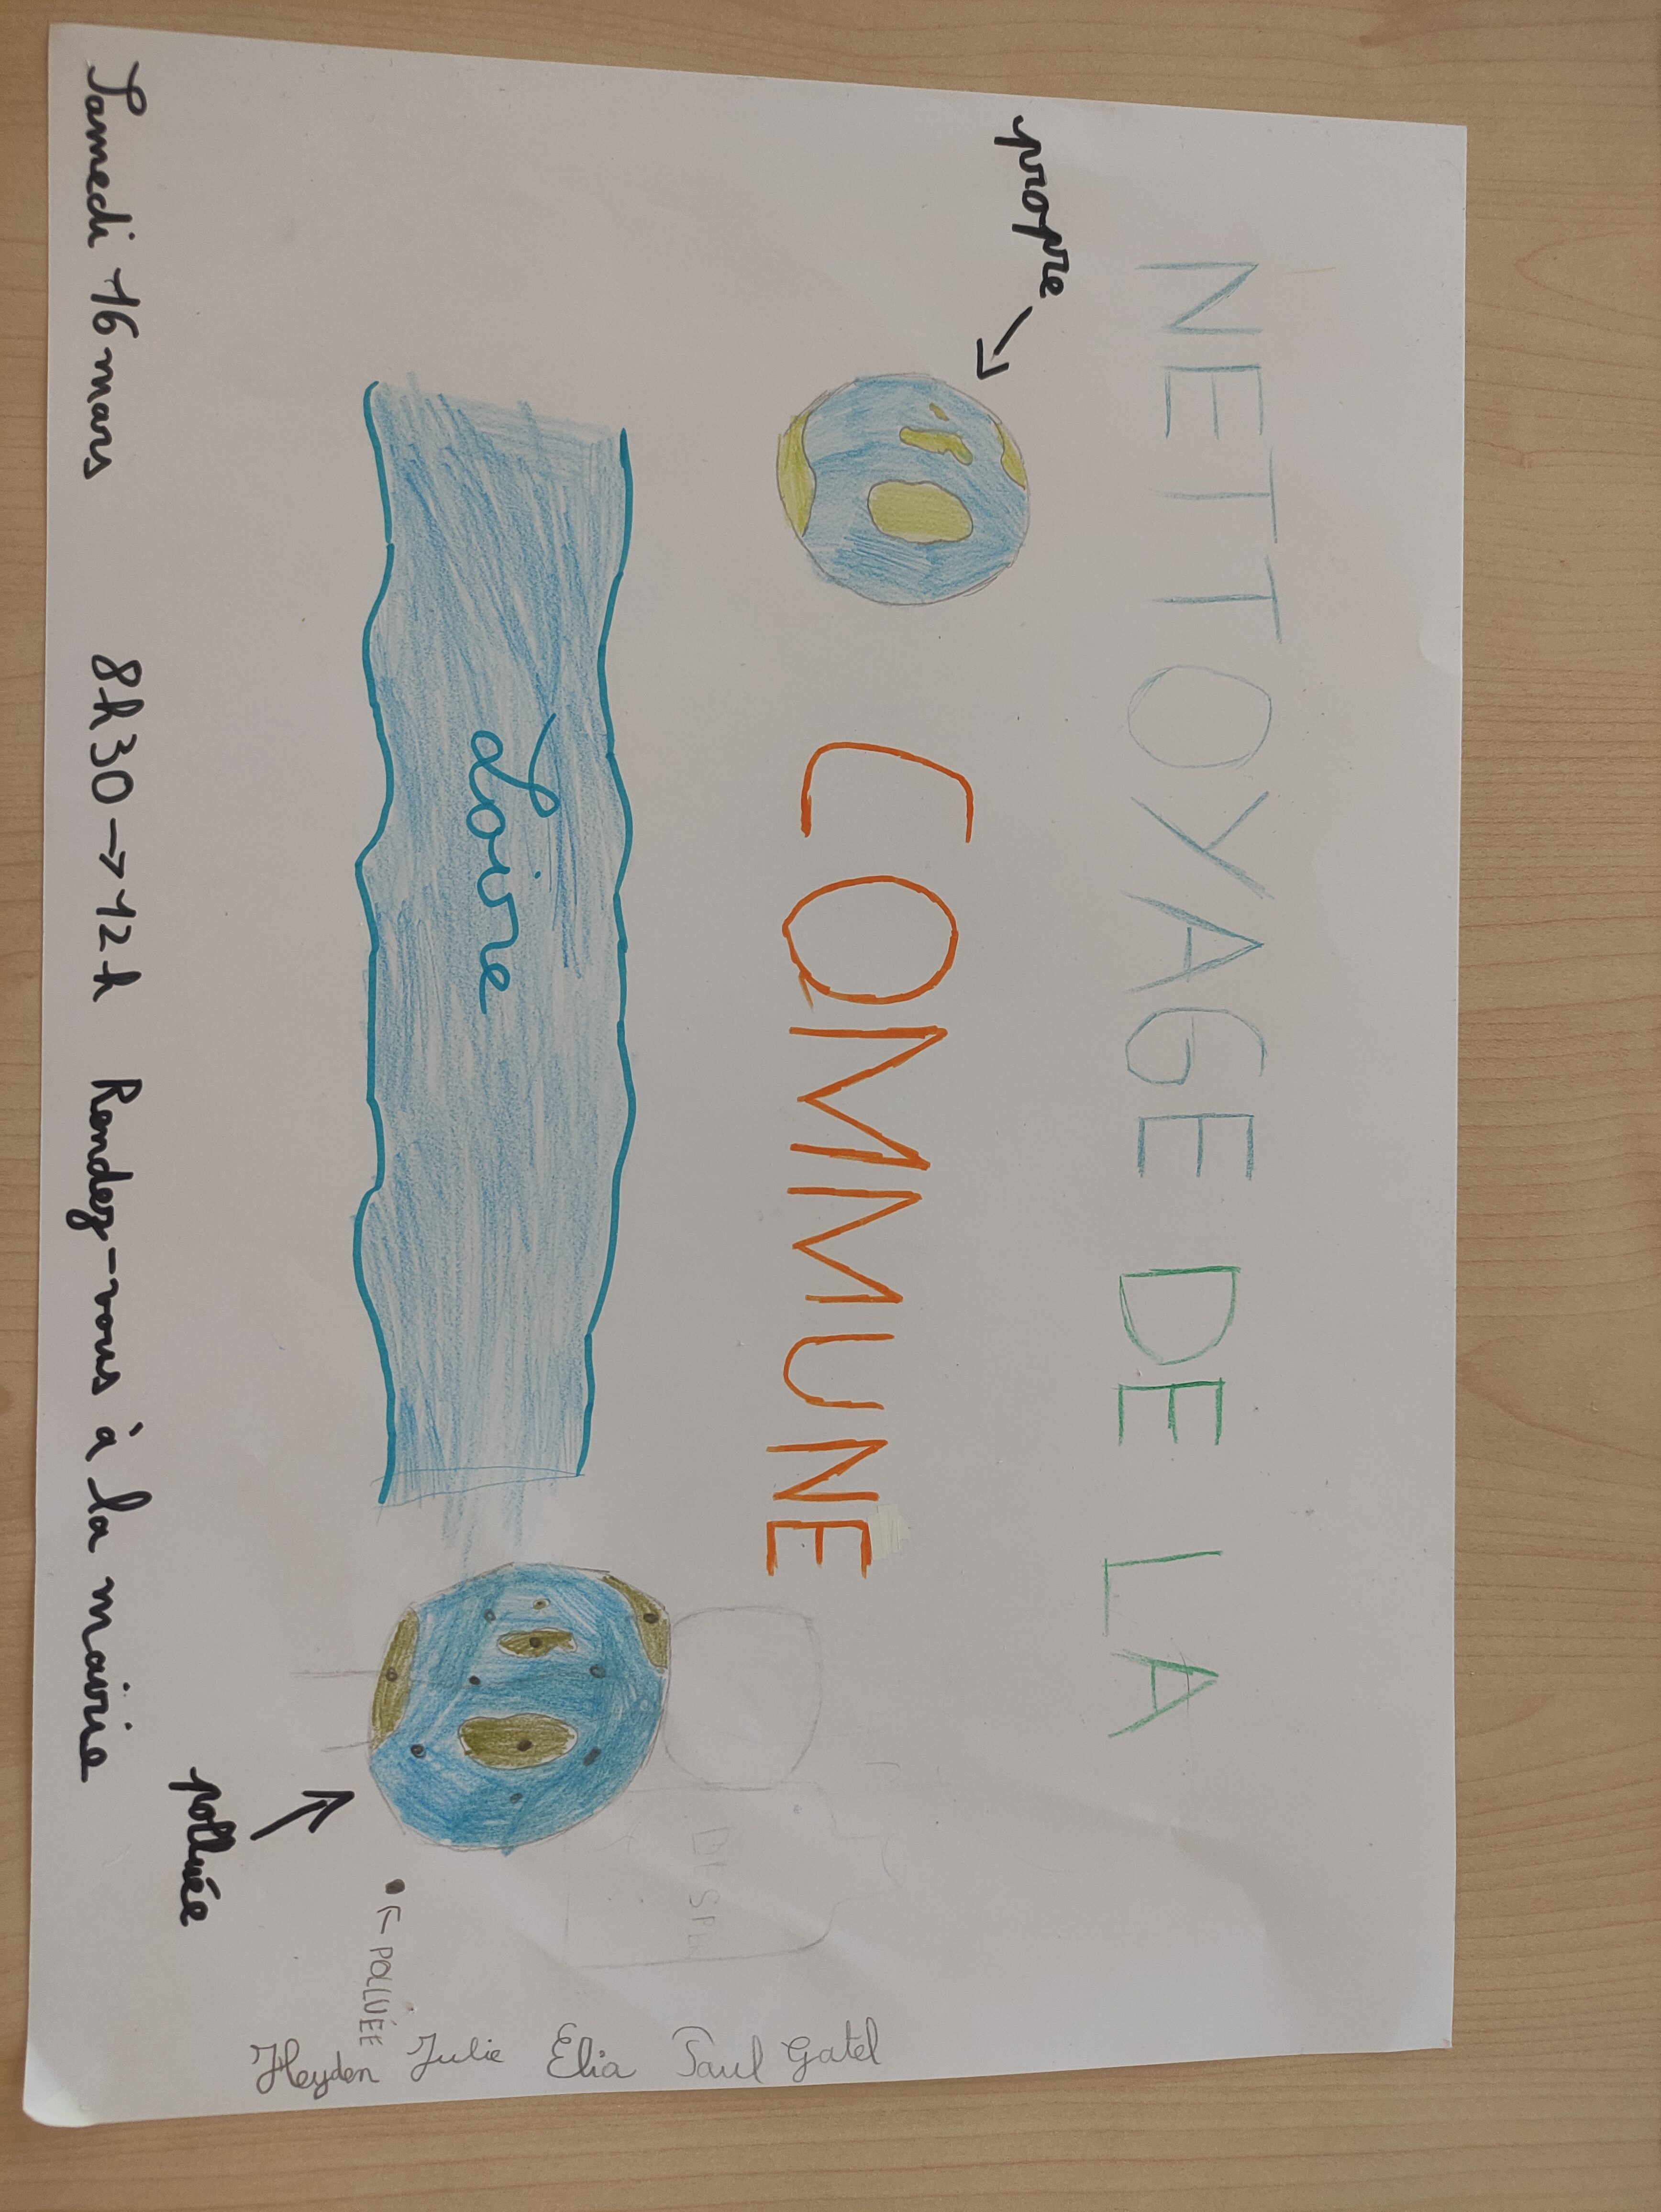 NETTOYAGE DE LA
propre
COMMUNE
Loire
POLLUÉE
polluée
Samedi 16 mars 8h30→12h Rendez-vous à la mairie
Heyden Julie Elia Paul Gatel